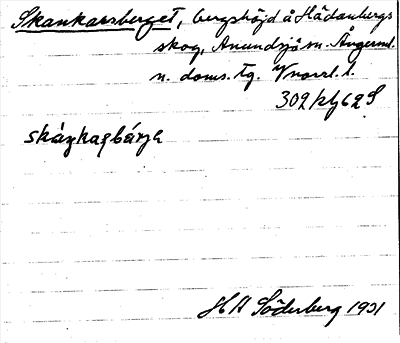 Skankarsberget, bergshöjd å Hädanbergs
skog, Anundsjö sn. Ångerml.
n. doms. tg. Vnorrl. l.
302 kfj 62 S
skáŋkaʂbárja
H A Söderberg 1931